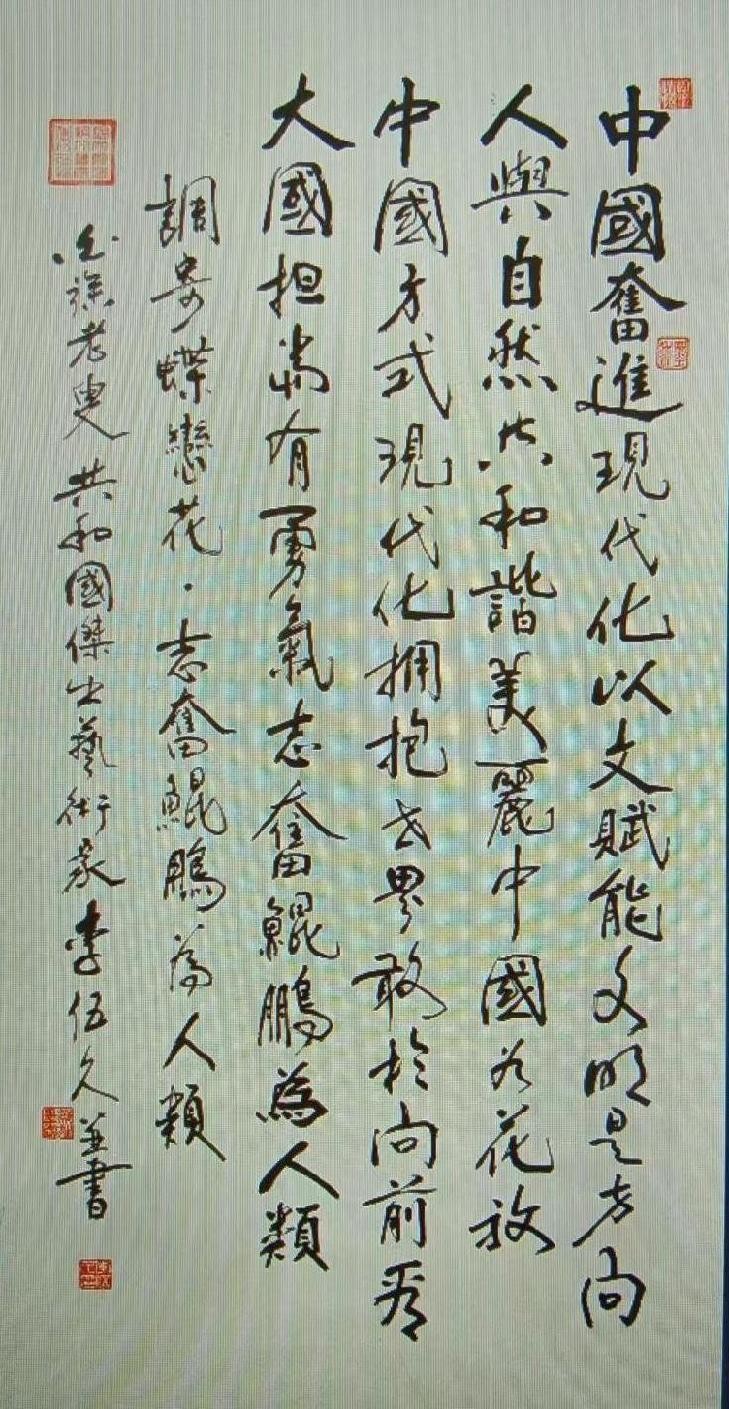 中國奮進現代化以文賦能文明是方向
人與自然共和諧美麗中國為花放
中國方式現代化拥抱世界敢於向前看
大國担當有勇氣志奮鯤鵬為人類
調寄蝶戀花·志奮鯤鵬為人類
老叟共和國傑出藝術家李伍久並書